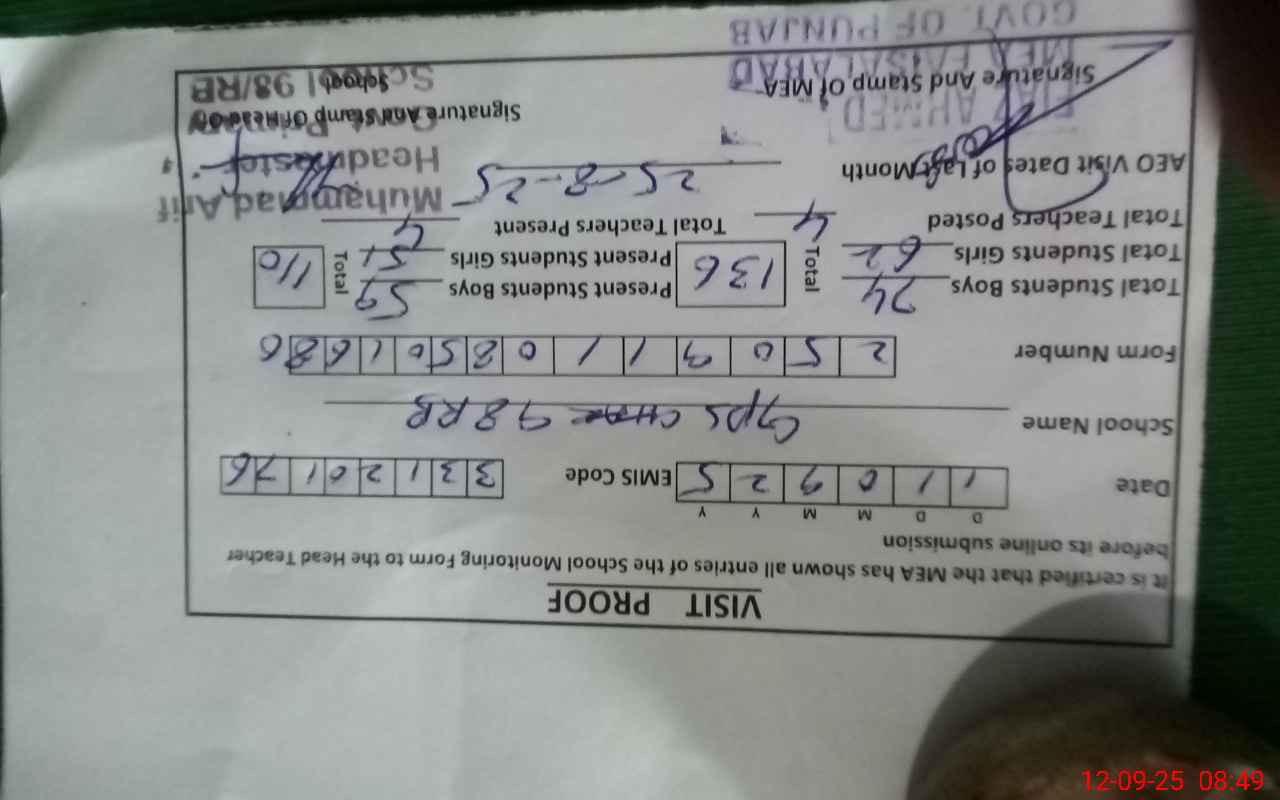 VISIT PROOF
It is certified that the MEA has shown all entries of the School Monitoring Form to the Head Teacher
before its online submission
D D M M Y Y
Date 1 1 0 9 2 5 EMIS Code 3 3 1 2 0 1 76
School Name GPS 98 RB
Form Number 2 5 0 9 1 1 0 8 5 0 1 6 8 6
Total Students Boys 74 Total 136 Present Students Boys 59 Total 110
Total Students Girls 62 Present Students Girls 51
Total Teachers Posted 4 Total Teachers Present 4
AEO Visit Dates of Last Month 25-8-25
Muhammad Arif
Headmaster
Govt. Primary
School 98/RB
Signature And Stamp Of MEA
Signature And Stamp Of Head Of
School
AHMED
MEA FAISALABAD
GOVT. OF PUNJAB
12-09-25 08:49